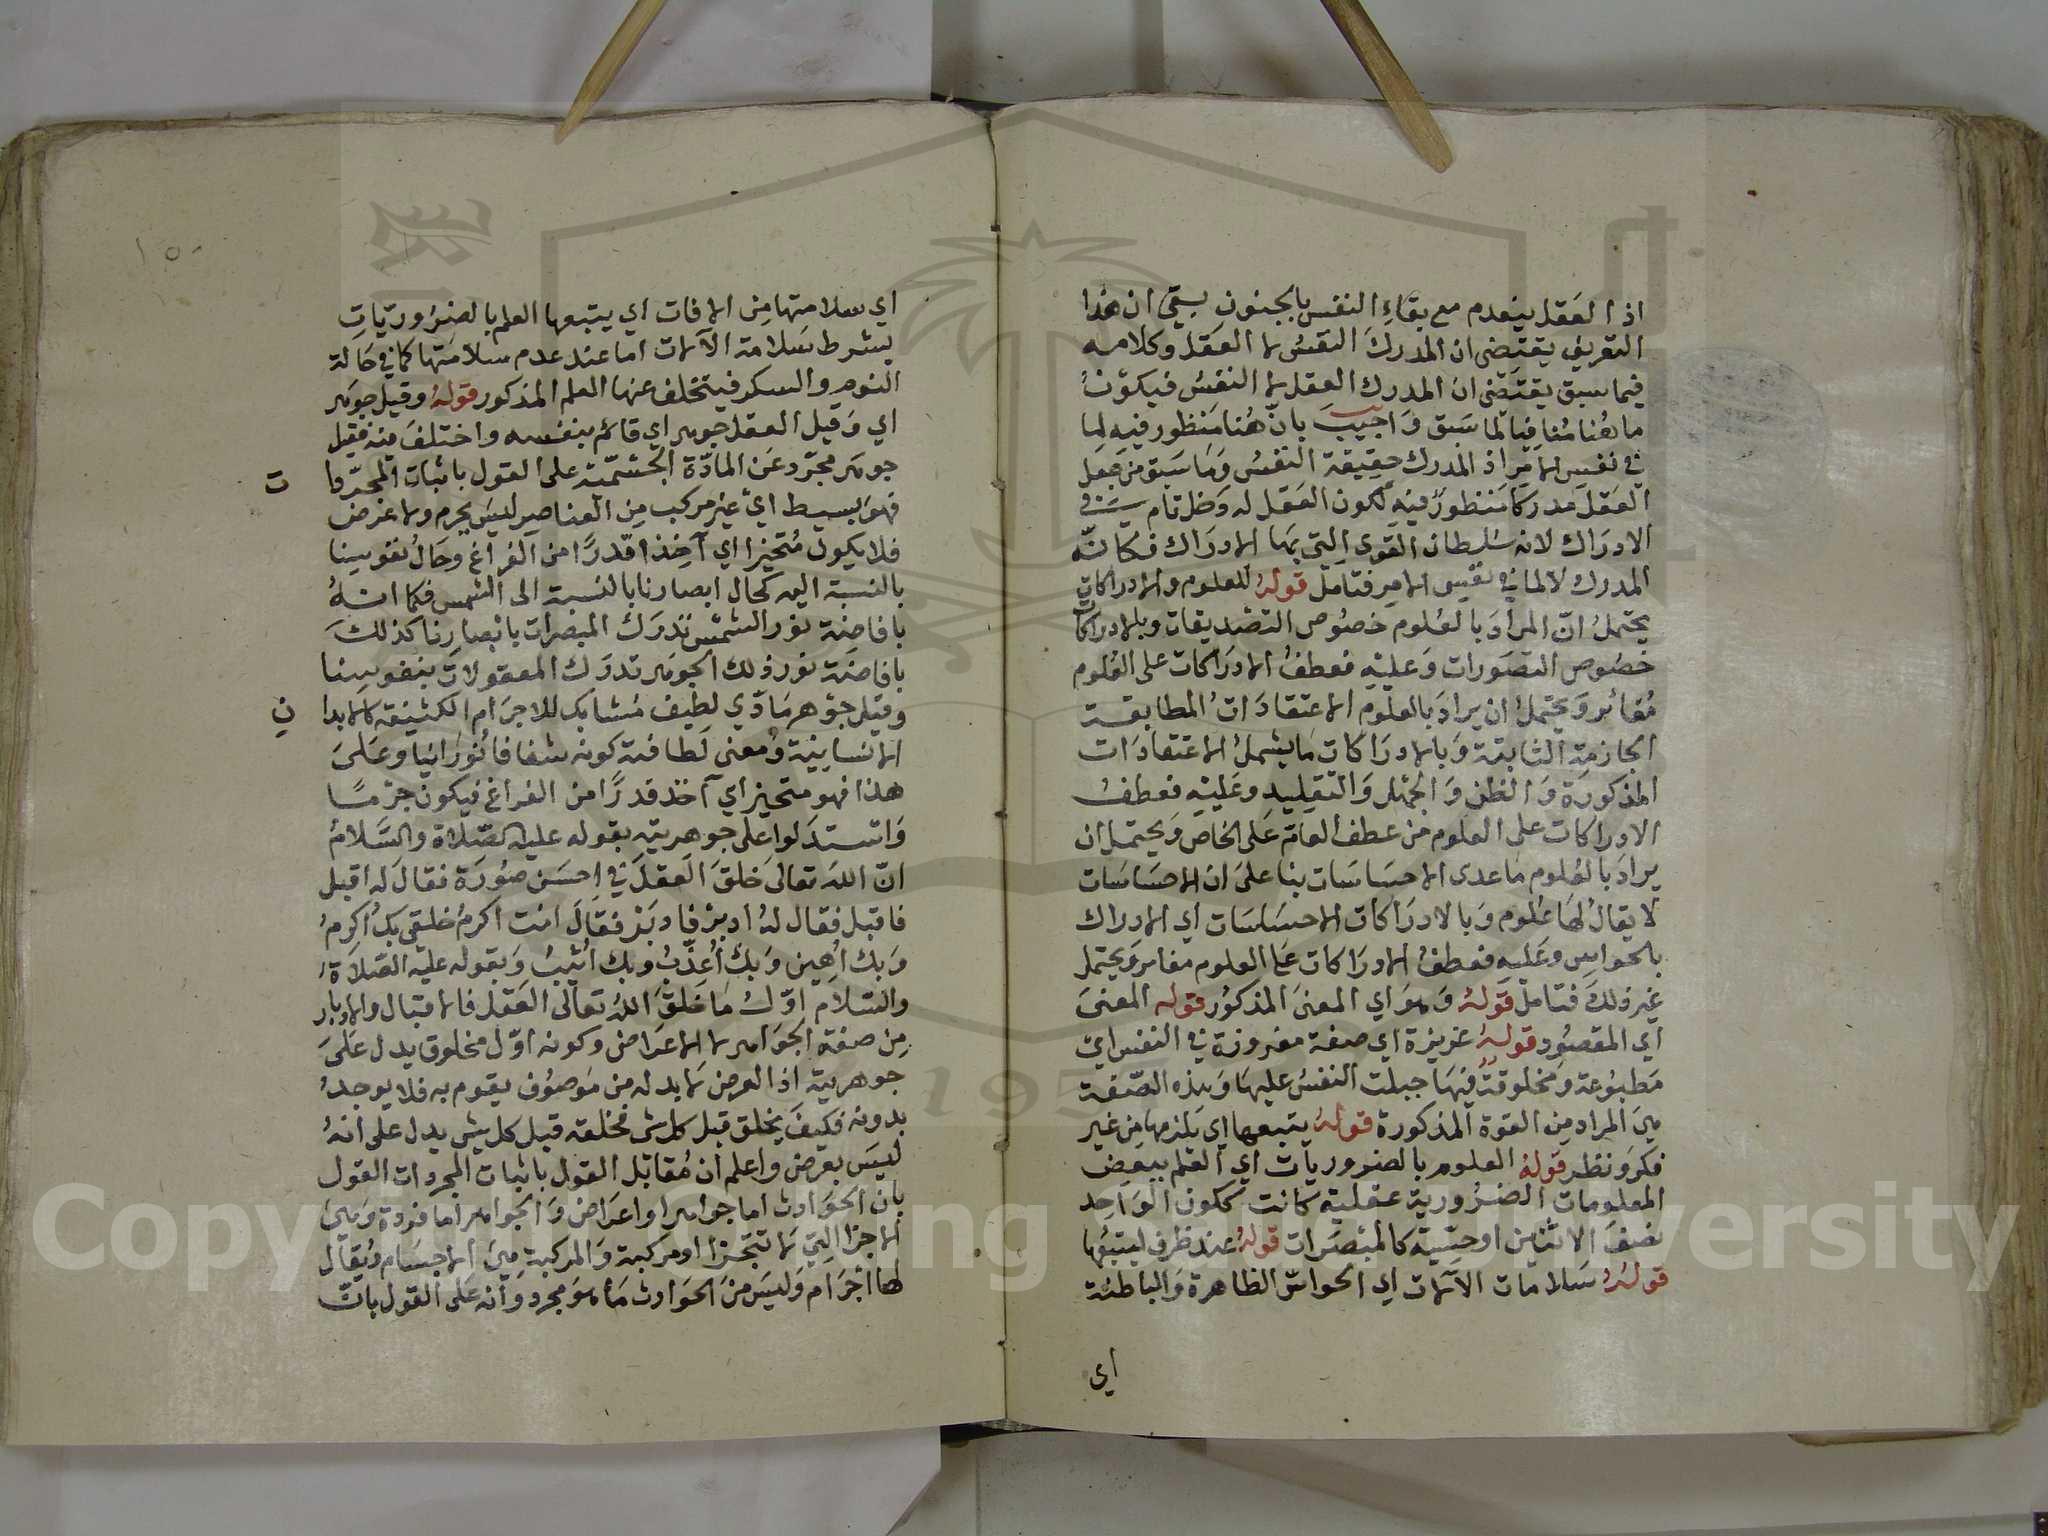 اذ العقل ينعدم مع بقاء النفس بالجنون بقي ان هذا
التعريف يقتضى ان المدرك النفس لا العقل وكلامه
فيما سبق يقتضى ان المدرك العقل لا النفس فيكون
ما هنا منافيا لما سبق واجيب بان هنا منظور فيه لما
في نفس الامر اذ المدرك حقيقة النفس وما سبق من جعل
العقل مدركا منظور فيه لكون العقل له دخل تام في
الادراك لانه سلطان القوى التي بها الادراك فكانه
المدرك لا لما في نفس الامر فتامل قوله للعلوم والادراكات
يحتمل ان المراد بالعلوم خصوص التصديقات وبالادراكات
خصوص التصورات وعليه فعطف الادراكات على العلوم
مغائر ويحتمل ان يراد بالعلوم الاعتقادات المطابقة
الجازمة الثابتة وبالادراكات ما يشمل الاعتقادات
المذكورة والظن والجهل والتقليد وعليه فعطف
الادراكات على العلوم من عطف العام على الخاص ويحتمل ان
يراد بالعلوم ما عدى الاحساسات بنا على ان الاحساسات
لا يقال لها علوم وبالادراكات الاحساسات اي الادراك
بالحواس وعليه فعطف الادراكات على العلوم مغاير ويحتمل
غير ذلك فتامل قوله وهو اي المعنى المذكور قوله المعنى
اي المقصود قوله غريزة اي صفة مغروزة في النفس اي
مطبوعة ومخلوقة فيها جبلت النفس عليها وهذه الصفة
هي المراد من القوة المذكورة قوله يتبعها اي يلزمها من غير
فكر ونظر قوله العلوم بالضروريات اي العلم ببعض
المعلومات الضرورية عقلية كانت ككون الواحد
نصف الاثنين او حسية كالمبصرات قوله عند ظرف ليتبعها
قوله سلامات الآلات اي الحواس الظاهرة والباطنة
اي
١٥٠
اي سلامتها من الافات اي يتبعها العلم بالضروريات
بشرط سلامة الآلات اما عند عدم سلامتها كما في حالة
النوم والسكر فيتخلف عنها العلم المذكور قوله وقيل جوهر
اي وقيل العقل جوهر اي قائم بنفسه واختلف فيه فقيل
جوهر مجرد عن المادة الجسمية على القول باثبات المجردا
ت
فهو بسيط اي غير مركب من العناصر ليس بجرم ولا عرض
فلا يكون متحيزا اي آخذا قدرا من الفراغ وحال نفوسنا
بالنسبة اليه كحال ابصارنا بالنسبة الى الشمس فكما انه
بافاضة نور الشمس تدرك المبصرات بابصارنا كذلك
بافاضة نور ذلك الجوهر تدرك المعقولات بنفوسنا
وقيل جوهر مادي لطيف مشابك للاجرام الكثيفة كالابدا
ن
الانسانية ومعنى لطافته كونه شفافا نورانيا وعلى
هذا فهو متحيز اي آخذ قدرا من الفراغ فيكون جرما
واستدلوا على جوهريته بقوله عليه الصلاة والسلام
ان الله تعالى خلق العقل في احسن صورة فقال له اقبل
فاقبل فقال له ادبر فادبر فقال انت اكرم خلقي بك اكرم
وبك أهين وبك أعذب وبك أثيب وبقوله عليه الصلاة
والسلام اول ما خلق الله تعالى العقل فالاقبال والادبار
من صفة الجواهر لا الاعراض وكونه اول مخلوق يدل على
جوهريته اذ العرض لا بد له من موصوف يقوم به فلا يوجد
بدونه فكيف يخلق قبل كل شى فخلقه قبل كل شي يدل على انه
ليس بعرض واعلم ان مقابل القول باثبات المجردات القول
بان الحوادث اما جواهر او اعراض والجواهر اما فردة وهي
الاجزا التي لا تتجزا او مركبة والمركبة هي الاجسام ويقال
لها أجرام وليس من الحوادث ما هو مجرد وأنه على القول بان
Copyright © King Saud University